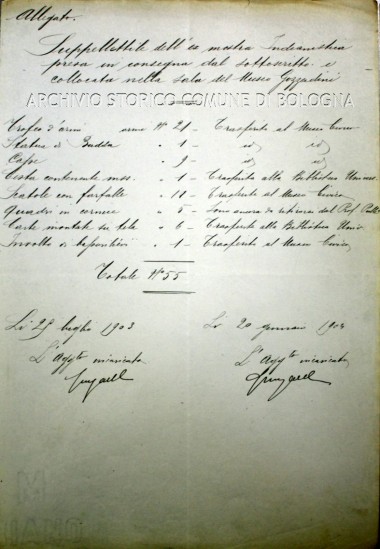 Allegato.
Suppellettile dell'ex mostra Indianistica
presa in consegna dal sottoscritto e
collocata nella sala del Museo Gozzadini
ARCHIVIO STORICO COMUNE DI BOLOGNA
Trofeo d'armi armi N° 21 - Trasferito al Museo Civico
Statua di Budda " 1 - id id
" 9 - id id
Cesta contenente mss. " 1 - Trasferito alla Biblioteca
Scatole con farfalle " 11 - Trasferite al Museo Civico
Quadri in cornice " 5 - Sono ancora da ritirarsi dal Prof.
Carte montate su tela " 6 - Trasferite alla Biblioteca
Involto di " 1 - Trasferito al Museo Civico
Totale N° 55
Lì 29 luglio 1903 Lì 20 gennaio 1904
L'Aggto incaricato L'Aggto incaricato